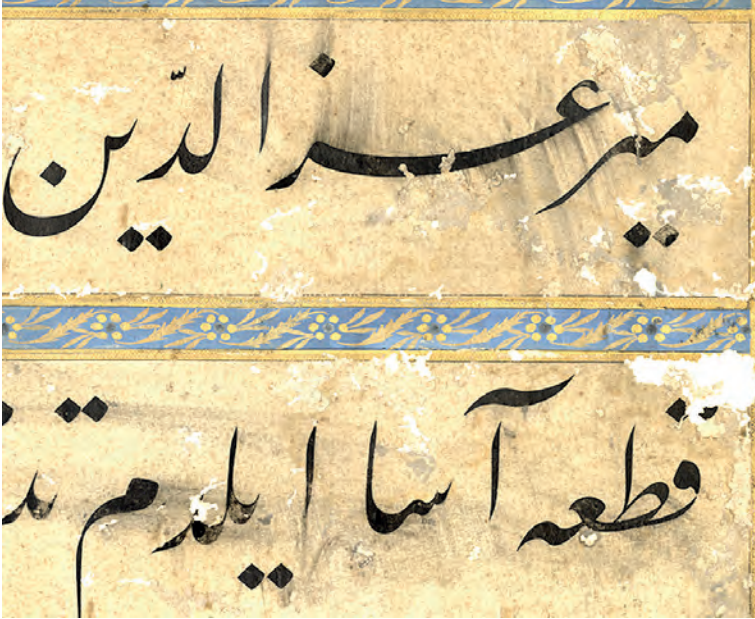 میر عز الدّین
قطعه آسا ایلدم